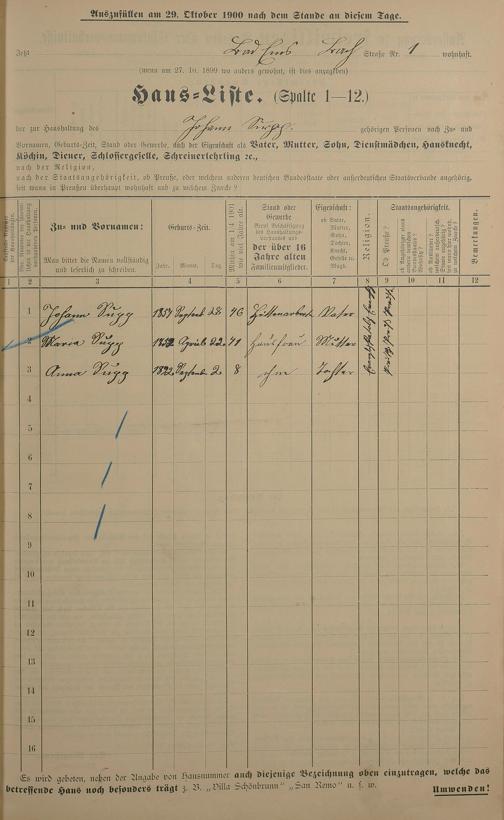 Auszufüllen am 29. Oktober 1900 nach dem Stande an diesem Tage.
Jetzt Bad Ems Bach Straße Nr. 1 wohnhaft.
(wenn am 27. 10. 1899 wo anders gewohnt, ist dies anzugeben)
Haus-Liste. (Spalte 1—12.)
der zur Haushaltung des Johann Supp gehörigen Personen nach Zu- und
Vornamen, Geburts-Zeit, Stand oder Gewerbe, nach der Eigenschaft als Vater, Mutter, Sohn, Dienstmädchen, Hausknecht,
Köchin, Diener, Schlossergeselle, Schreinerlehrling ꝛc.,
nach der Religion,
nach der Staatsangehörigkeit, ob Preuße, oder welchem anderen deutschen Bundesstaate oder außerdeutschen Staatsverbande angehörig,
seit wann in Preußen überhaupt wohnhaft und zu welchem Zwecke?
Zu- und Vornamen:
Man bittet die Namen vollständig
und leserlich zu schreiben.
Geburts-Zeit.
Jahr. Monat. Tag
Stand oder
Gewerbe
der über 16
Jahre alten
Familienmitglieder.
Eigenschaft:
ob Vater,
Mutter,
Sohn,
Tochter,
Knecht,
Geselle u.
Magd.
Religion.
Staatsangehörigkeit.
Ob Preuße?
Bemerkungen.
1 2 3 4 5 6 7 8 9 10 11 12
1 Johann Supp Septemb 28 46 Hüttenarbeit Vater
2 Maria Supp April 22 Hausfrau Mutter
3 Anna Supp 1892 Septemb 2 8 ohne Tochter
4
5
6
7
8
9
10
11
12
13
14
15
16
Es wird gebeten, neben der Angabe von Hausnummer auch diejenige Bezeichnung oben einzutragen, welche das
betreffende Haus noch besonders trägt z. B. „Villa Schönbrunn“ „San Remo“ u. s. w. Umwenden!